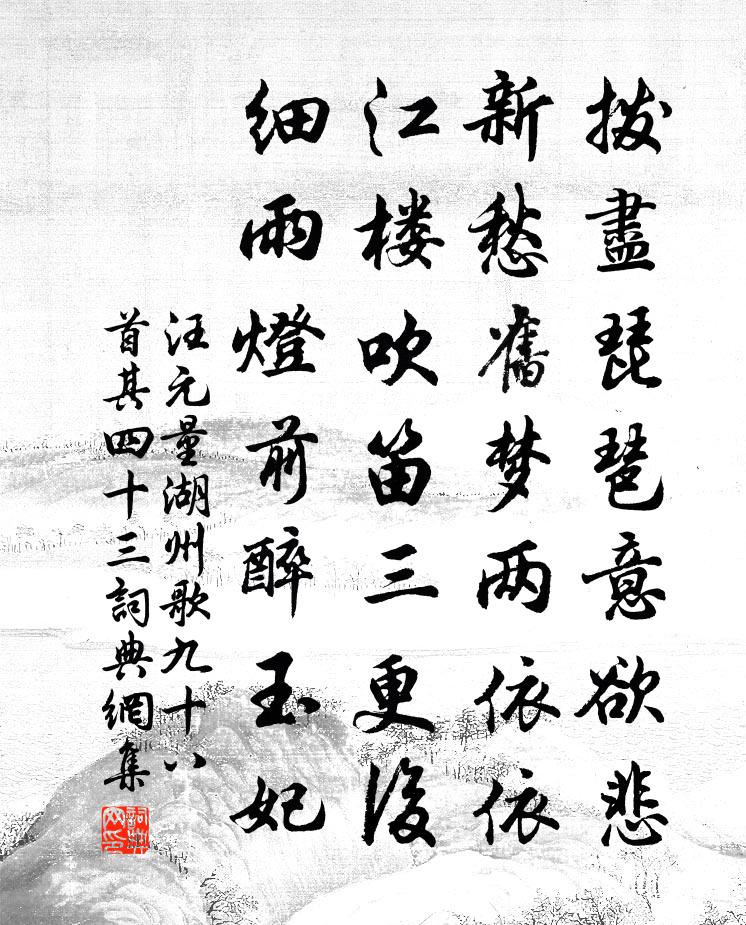 拨盡琵琶意欲悲
新愁舊梦两依依
江楼吹笛三更後
细雨燈前醉玉妃
汪元量湖州歌九十八
首其四十三詞典網集